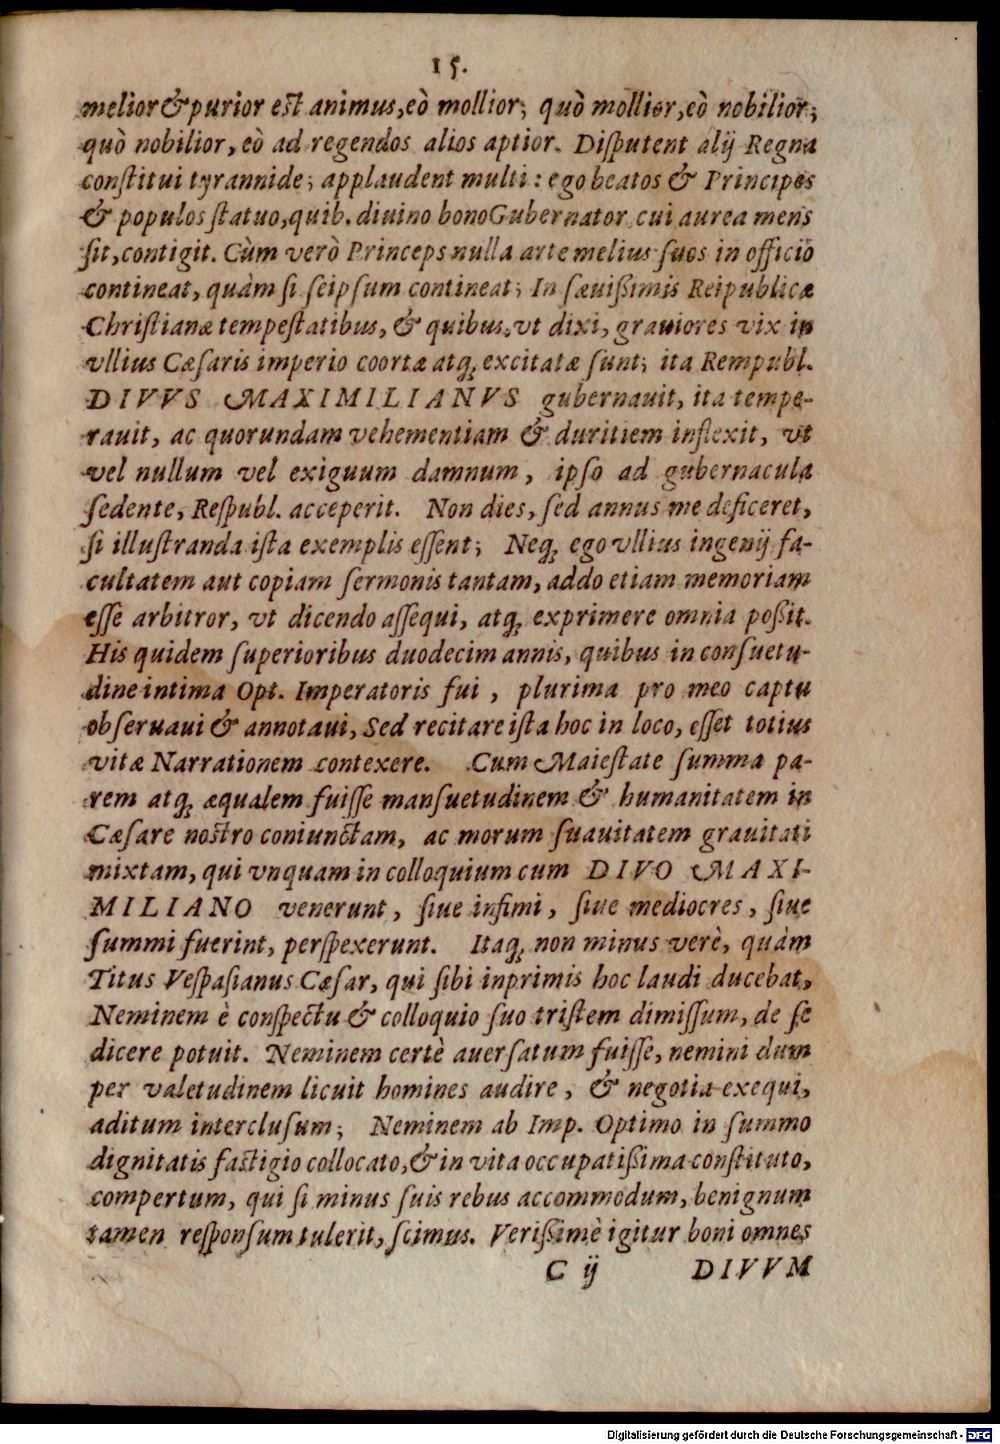 15.
melior & purior est animus, eò mollior; quò mollior, eò nobilior;
quò nobilior, eò ad regendos alios aptior. Disputent alij Regna
constitui tyrannide; applaudent multi: ego beatos & Principes
& populos statuo, quib. diuino bono Gubernator cui aurea mens
sit, contigit. Cùm verò Princeps nulla arte melius suos in officio
contineat, quàm si seipsum contineat; In sæuißimis Reipublicæ
Christianæ tempestatibus, & quibus, vt dixi, grauiores vix in
vllius Cæsaris imperio coortæ atq; excitatæ sunt; ita Rempubl.
DIVVS MAXIMILIANVS gubernauit, ita tempe-
rauit, ac quorundam vehementiam & duritiem inflexit, vt
vel nullum vel exiguum damnum, ipso ad gubernacula
sedente, Respubl. acceperit. Non dies, sed annus me deficeret,
si illustranda ista exemplis essent; Neq; ego vllius ingenij fa-
cultatem aut copiam sermonis tantam, addo etiam memoriam
esse arbitror, vt dicendo assequi, atq; exprimere omnia poßit.
His quidem superioribus duodecim annis, quibus in consuetu-
dine intima Opt. Imperatoris fui, plurima pro meo captu
obseruaui & annotaui, Sed recitare ista hoc in loco, esset totius
vitæ Narrationem contexere. Cum Maiestate summa pa-
rem atq; æqualem fuisse mansuetudinem & humanitatem in
Cæsare nostro coniunctam, ac morum suauitatem grauitati
mixtam, qui vnquam in colloquium cum DIVO MAXI-
MILIANO venerunt, siue infimi, siue mediocres, siue
summi fuerint, perspexerunt. Itaq; non minus verè, quàm
Titus Vespasianus Cæsar, qui sibi inprimis hoc laudi ducebat,
Neminem è conspectu & colloquio suo tristem dimissum, de se
dicere potuit. Neminem certè auersatum fuisse, nemini dum
per valetudinem licuit homines audire, & negotia exequi,
aditum interclusum; Neminem ab Imp. Optimo in summo
dignitatis fastigio collocato, & in vita occupatißima constituto,
compertum, qui si minus suis rebus accommodum, benignum
tamen responsum tulerit, scimus. Verißimè igitur boni omnes
C ij DIVVM
Digitalisierung gefördert durch die Deutsche Forschungsgemeinschaft - DFG